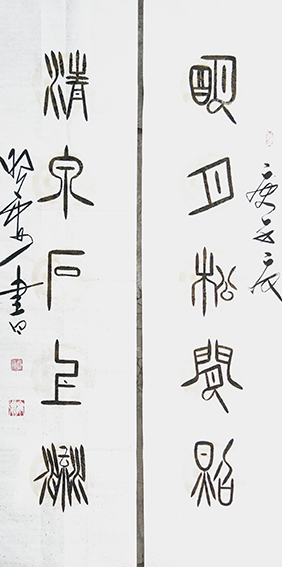 庚子
明月松間照
清泉石上流
書